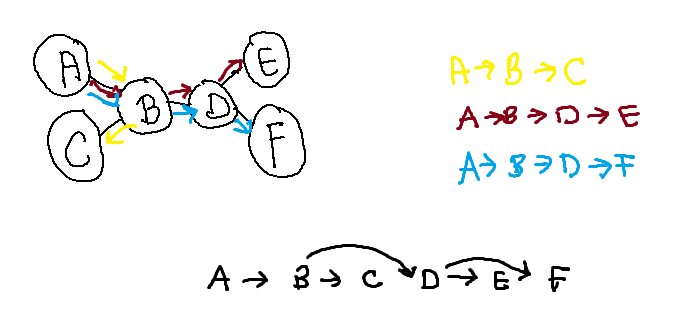 A
E
B
D
C
F
A → B → C
A → B → D → E
A → B → D → F
A → B → C D → E F